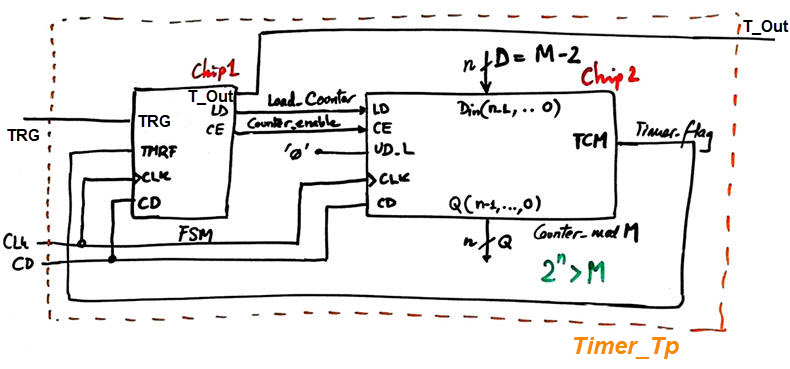 T_Out
n D = M-2
Chip1
Chip2
T_Out
Load_Counter
LD
LD
Din(n-1,..0)
TRG
TRG
CE
Counter_enable
CE
TCM
Timer_flag
TMRF
'0'
UD_L
CLK
CLK
CD
CD
Q(n-1,...,0)
CLK
FSM
n Q
Counter_mod M
CD
2^n > M
Timer_Tp